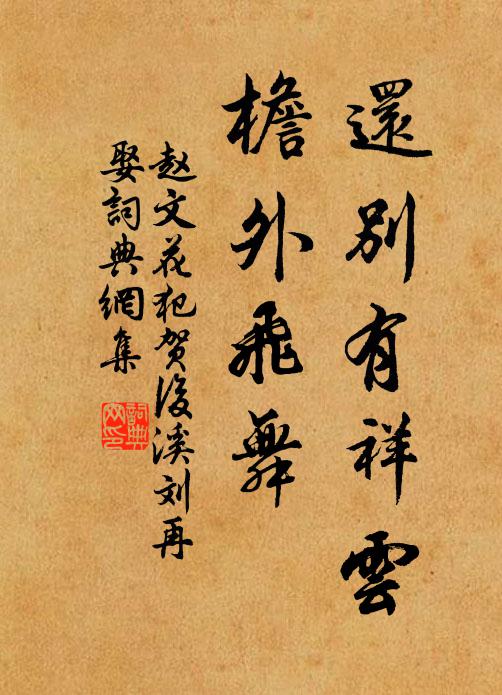 還別有祥雲
檐外飛舞
赵文花犯贺後溪刘再
娶詞典網集
詞典网印